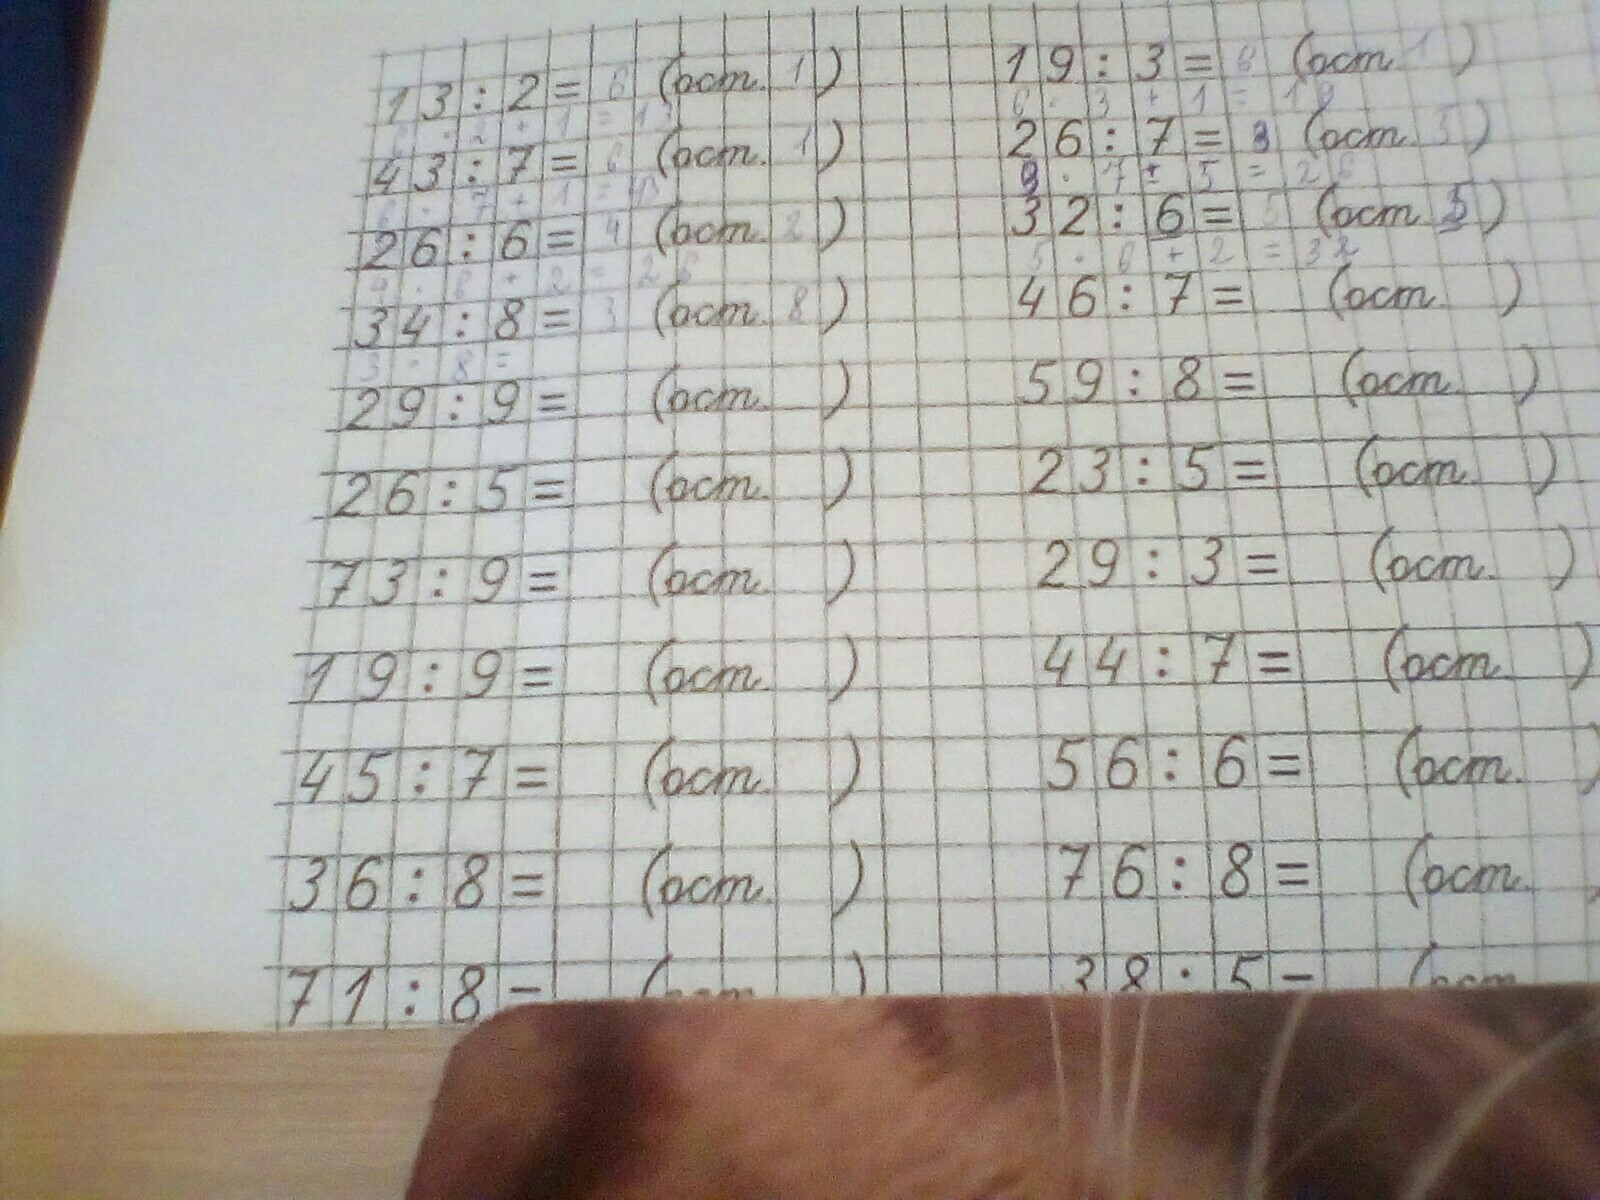 13:2= 6 (ост. 1) 19:3= 6 (ост. 1)
6·2+1=13 6·3+1=19
43:7= 6 (ост. 1) 26:7= 3 (ост. 5)
6·7+1=43 3·7+5=26
26:6= 4 (ост. 2) 32:6= 5 (ост. )
4·6+2=26 5·6+2=32
34:8= 3 (ост. 8) 46:7= (ост. )
3·8=
29:9= (ост. ) 59:8= (ост. )
26:5= (ост. ) 23:5= (ост. )
73:9= (ост. ) 29:3= (ост. )
19:9= (ост. ) 44:7= (ост. )
45:7= (ост. ) 56:6= (ост. )
36:8= (ост. ) 76:8= (ост. )
71:8= (ост. ) 38:5= (ост.